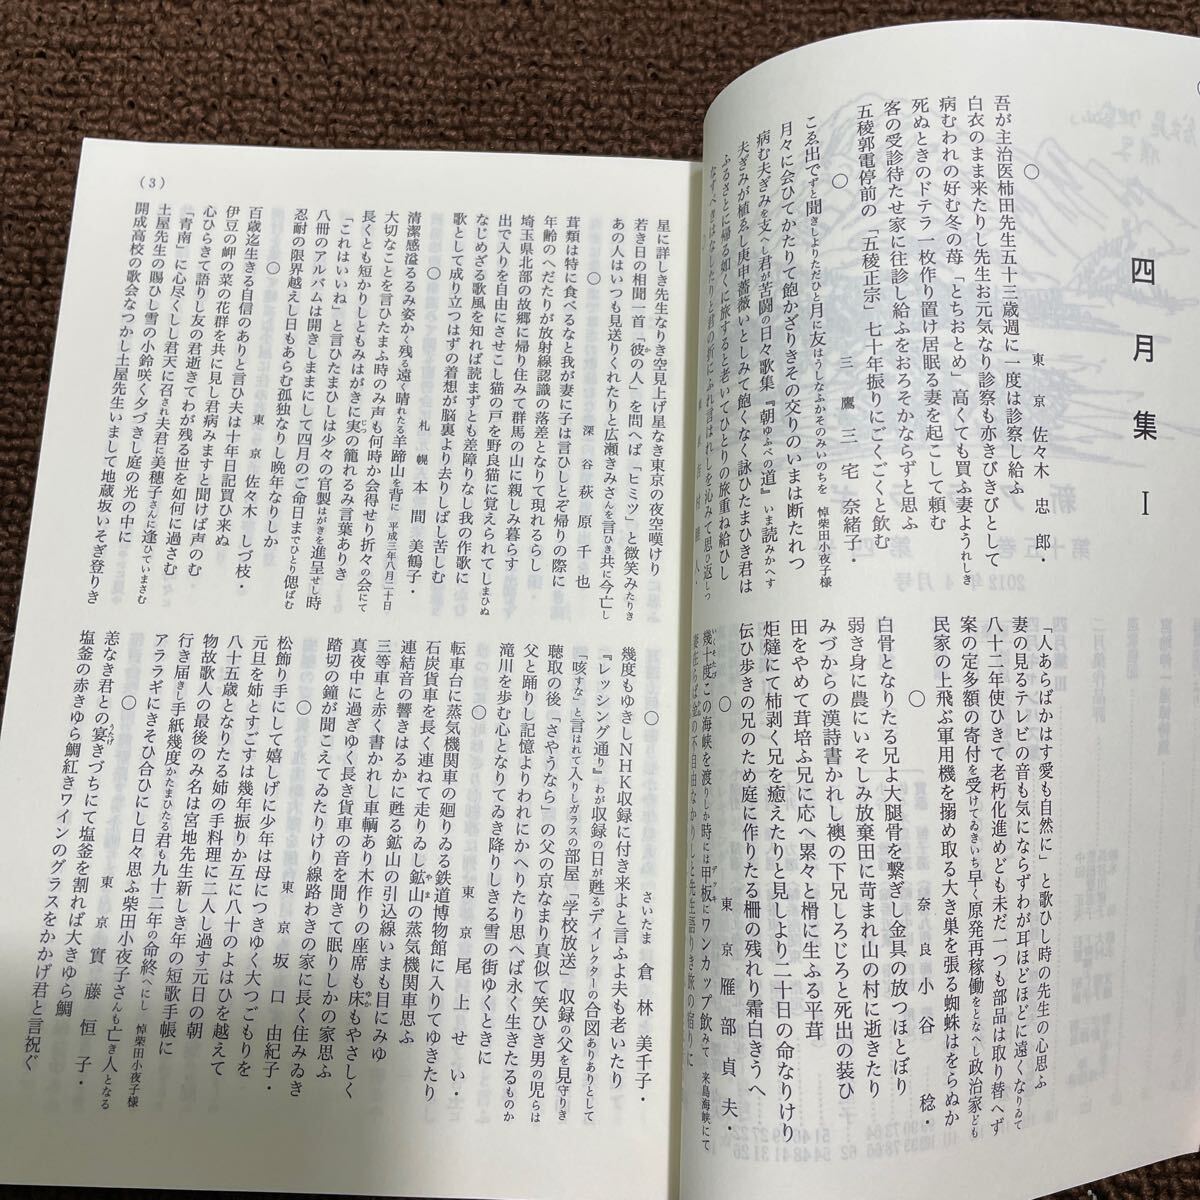 四月集 Ⅰ
○ 東京 佐々木 忠郎・
吾が主治医柿田先生五十三歳週に一度は診察し給ふ
白衣のまま来たりし先生お元気なり診察も亦きびきびとして
病むわれの好む冬の苺「とちおとめ」高くても買ふ妻ようれしき
死ぬときのドテラ一枚作り置け居眠る妻を起こして頼む
客の受診待たせ家に往診し給ふをおろそかならずと思ふ
五稜郭電停前の「五稜正宗」七十年振りにごくごくと飲む
○ 三鷹 三宅 奈緒子・
こゑ出でずと聞きしよりただひと月に友はうしなふかそのみいのちを 悼柴田小夜子様
月々に会ひてかたりて飽かざりきその交りのいまは断たれつ
病む夫ぎみを支へし君が苦闘の日々歌集『朝ゆふべの道』いま読みかへす
夫ぎみが植ゑし庚申薔薇いとしみて飽くなく詠ひたまひき君は
ふるさとに帰る如くに旅すると老いてひとりの旅重ね給ひし
なすべきはなしたりと君の折にふれ言はれしを沁みて思ひ返しつ
「人あらばかはす愛も自然に」と歌ひし時の先生の心思ふ
妻の見るテレビの音も気にならずわが耳ほどほどに遠くなりゐて
八十二年使ひきて老朽化進めども未だ一つも部品は取り替へず
案の定多額の寄付を受けてゐきいち早く原発再稼働をとなへし政治家ども
民家の上飛ぶ軍用機を搦め取る大き巣を張る蜘蛛はをらぬか
○ 奈良 小谷 稔・
白骨となりたる兄よ大腿骨を繋ぎし金具の放つほとぼり
弱き身に農にいそしみ放棄田に苛まれ山の村に逝きたり
みづからの漢詩書かれし襖の下兄しろじろと死出の装ひ
田をやめて茸培ふ兄に応へ累々と榾に生ふる平茸
炬燵にて柿剥く兄を癒えたりと見しより二十日の命なりけり
伝ひ歩きの兄のため庭に作りたる柵の残れり霜白きうへ
○ 東京 雁部 貞夫・
幾十度この海峡を渡りしか時には甲板にワンカップ飲みて 来島海峡にて
(3)
星に詳しき先生なりき空見上げ星なき東京の夜空嘆けり
若き日の相聞一首「彼の人」を問へば「ヒミツ」と微笑みたりき
あの人はいつも見送りくれたりと広瀬きみさんを言ひき共に今亡し
○ 深谷 萩原 千也
茸類は特に食べるなと我が妻に子は言ひしとぞ帰りの際に
年齢のへだたりが放射線認識の落差となりて現れるらし
埼玉県北部の故郷に帰り住みて群馬の山に親しみ暮らす
出で入りを自由にさせこし猫の戸を野良猫に覚えられてしまひぬ
なじめざる歌風を知れば読まずとも差障りなし我の作歌に
歌として成り立つはずの着想が脳裏より去りしばし苦しむ
○ 札幌 本間 美鶴子・
清潔感溢るるみ姿かく残る遠く晴れたる羊蹄山を背に 平成三年八月二十日
大切なことを言ひたまふ時のみ声も何時か会得せり折々の会にて
長くとも短かりしともみはがきに実の籠れるみ言葉ありき
「これはいいね」と言ひたまひしは少々の官製はがきを進呈せし時
八冊のアルバムは開きしままにして四月のご命日までひとり偲ばむ
忍耐の限界越えし日もあらむ孤独なりし晩年なりしか
○ 東京 佐々木 しづ枝・
百歳迄生きる自信のありと言ひ夫は十年日記買ひ来ぬ
伊豆の岬の菜の花群を共に見し君病みますと聞けば声のむ
心ひらきて語りし友の君逝きてわが残る世を如何に過さむ
「青南」に心尽くしし君天に召され夫君に美穂子さんに逢ひていまさむ
土屋先生の賜ひし雪の小鈴咲く夕づきし庭の光の中に
開成高校の歌会なつかし土屋先生いまして地蔵坂いそぎ登りき
○ さいたま 倉林 美千子・
幾度もゆきしNHK収録に付き来よと言ふよ夫も老いたり
『レッシング通り』わが収録の日が甦るディレクターの合図ありありとして
「咳すな」と言はれて入りしガラスの部屋「学校放送」収録の父を見守りき
聴取の後「さやうなら」の父の京なまり真似て笑ひき男の児らは
父と踊りし記憶よりわれにかへりたり思へば永く生きたるものか
滝川を歩む心となりてゐき降りしきる雪の街ゆくときに
○ 東京 尾上 せい・
転車台に蒸気機関車の廻りゐる鉄道博物館に入りてゆきたり
石炭貨車を長く連ねて走りゐし鉱山の蒸気機関車思ふ
連結音の響きはるかに甦る鉱山の引込線いまも目にみゆ
三等車と赤く書かれし車輌あり木作りの座席も床もやさしく
真夜中に過ぎゆく長き貨車の音を聞きて眠りしかの家思ふ
踏切の鐘が聞こえてゐたりけり線路わきの家に長く住みゐき
○ 東京 坂口 由紀子・
松飾り手にして嬉しげに少年は母につきゆく大つごもりを
元旦を姉とすごすは幾年振りか互に八十のよはひを越えて
八十五歳となりたる姉の手料理に二人し過す元日の朝
物故歌人の最後のみ名は宮地先生新しき年の短歌手帳に
行き届きし手紙幾度かたまひたる君も九十二年の命終へにし 悼柴田小夜子様
アララギにきそひ合ひにし日々思ふ柴田小夜子さんも亡き人となる
○ 東京 實藤 恒子・
恙なき君との宴きづちにて塩釜を割れば大きゆら鯛
塩釜の赤きゆら鯛紅きワインのグラスをかかげ君と言祝ぐ